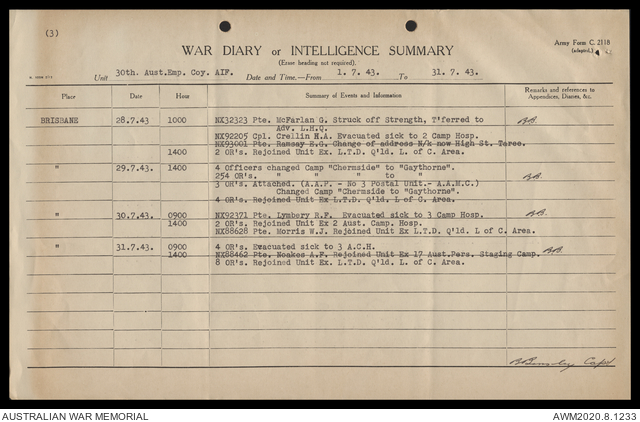 (3)
WAR DIARY or INTELLIGENCE SUMMARY
(Erase heading not required).
Army Form C. 2118
(adapted.)
Unit 30th. Aust.Emp. Coy. AIF. Date and Time.—From 1. 7. 43. To 31. 7. 43.
Place Date Hour Summary of Events and Information Remarks and references to Appendices, Diaries, &c.
BRISBANE 28.7.43 1000 NX32323 Pte. McFarlan G. Struck off Strength, T'ferred to
Adv. L.H.Q. BB.
NX92205 Cpl. Crellin H.A. Evacuated sick to 2 Camp Hosp.
NX93001 Pte. Ramsay E.G. Change of address N/k now High St. Toree.
1400 2 OR's. Rejoined Unit Ex L.T.D. Q'ld. L. of C. Area.
" 29.7.43. 1400 4 Officers changed Camp "Chermside" to "Gaythorne".
254 OR's. " " " to " BB.
3 OR's. Attached. (A.A.P. - No 3 Postal Unit.- A.A.M.C.)
Changed Camp "Chermside to "Gaythorne".
4 OR's. Rejoined Unit Ex L.T.D. Q'ld. L. of C. Area.
" 30.7.43. 0900 NX92371 Pte. Lymbery R.F. Evacuated sick to 3 Camp Hosp. BB.
1400 2 OR's. Rejoined Unit Ex 2 Aust. Camp. Hosp.
NX88628 Pte. Morris W.J. Rejoined Unit Ex L.T.D. Q'ld. L of C. Area.
" 31.7.43. 0900 4 OR's. Evacuated sick to 3 A.C.H.
1400 NX88462 Pte. Noakes A.F. Rejoined Unit Ex 17 Aust.Pers. Staging Camp. BB.
8 OR's. Rejoined Unit Ex. L.T.D. Q'ld. L. of C. Area.
Capt
AUSTRALIAN WAR MEMORIAL AWM2020.8.1233